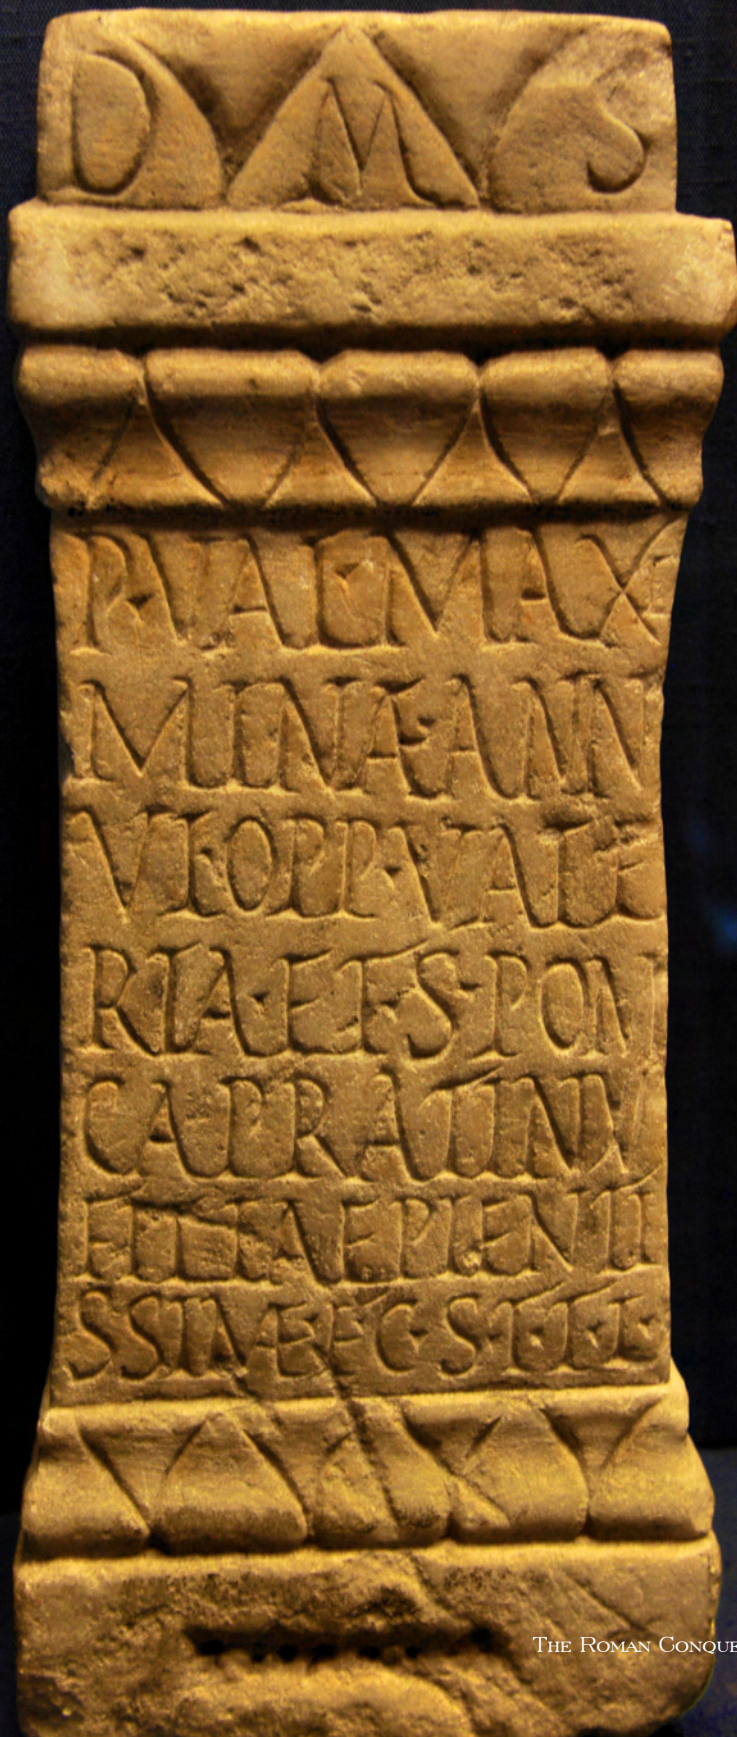 D M S
P·VAL MAXI
MINAE·ANN
VI·OPP·VALE
RIA·ET·S·PON
CAPRATINV
FILIAE PIENTI
SSIMAE·F·C·S·T·T·L·
THE ROMAN CONQUE